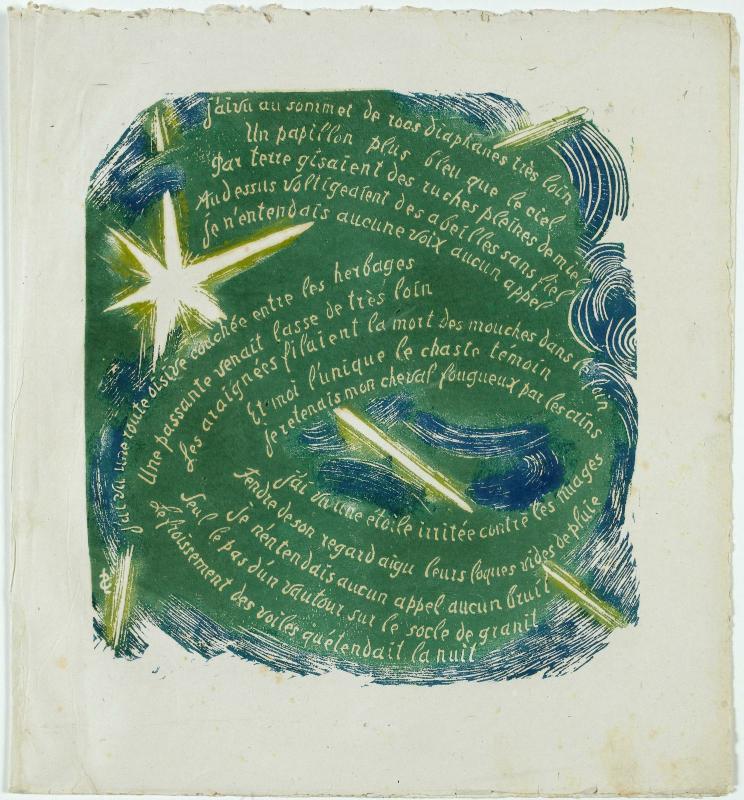 J'ai vu au sommet de rocs diaphanes très loin
Un papillon plus bleu que le ciel
Par terre gisaient des ruches pleines de miel
Au dessus voltigeaient des abeilles sans fiel
Je n'entendais aucune voix aucun appel
J'ai vu une route oisive couchée entre les herbages
Une passante venait lasse de très loin
Les araignées filaient la mort des mouches dans le foin
Et moi l'unique le chaste temoin
Je retenais mon cheval fougueux par les crins
J'ai vu une étoile irritée contre les nuages
Fendre de son regard aigu leurs loques vides de pluie
Je n'entendais aucun appel aucun bruit
Seul le pas d'un vautour sur le socle de granit
Le froissement des voiles qu'étendait la nuit